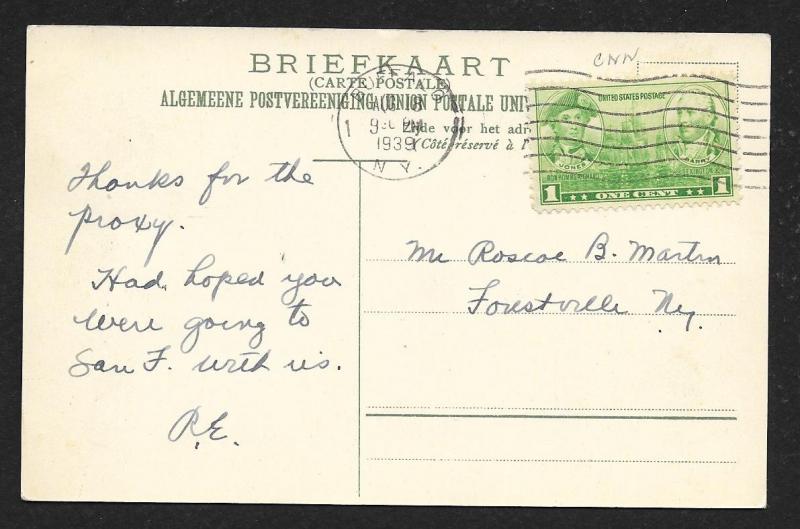 CNN
BRIEFKAART
(CARTE POSTALE)
ALGEMEENE POSTVEREENIGING (UNION POSTALE UNI
Zijde voor het adr
(Côté réservé à l'
AUG
1939
N.Y.
1
UNITED STATES POSTAGE
JONES
BARRY
BON HOMME RICHARD
LEXINGTON
1 ONE CENT 1
Thanks for the
proxy.
Had hoped you
were going to
San F. with us.
P.E.
Mr Roscoe B. Martin
Forestville Ny.